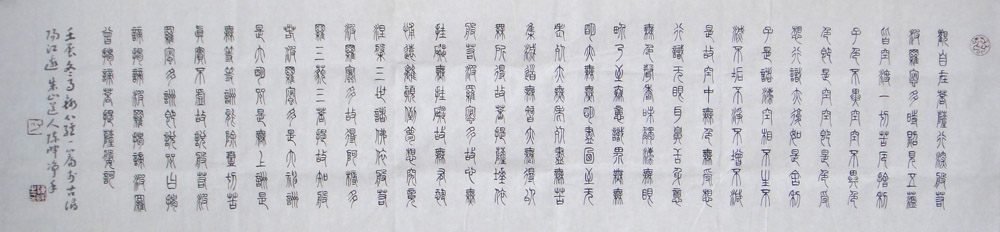 觀自在菩薩行深般若
波羅蜜多時照見五蘊
皆空度一切苦厄舍利
子色不異空空不異色
色即是空空即是色受
想行識亦復如是舍利
子是諸法空相不生不
滅不垢不淨不增不減
是故空中無色無受想
行識无眼耳鼻舌身意
無色聲香味觸法無眼
界乃至無意識界無無
明亦無無明盡乃至无
老死亦無老死盡無苦
集滅道無智亦無得以
無所得故菩提薩埵依
般若波羅蜜多故心無
罣礙無罣礙故無有恐
怖遠離顛倒夢想究竟
涅槃三世諸佛依般若
波羅蜜多故得阿耨多
羅三藐三菩提故知般
若波羅蜜多是大神咒
是大明咒是無上咒是
無等等咒能除一切苦
真實不虛故說般若波
羅蜜多咒即說咒曰揭
諦揭諦波羅揭諦波羅
僧揭諦菩提薩婆訶
壬辰冬月心經一篇書於古
陽江道人陈